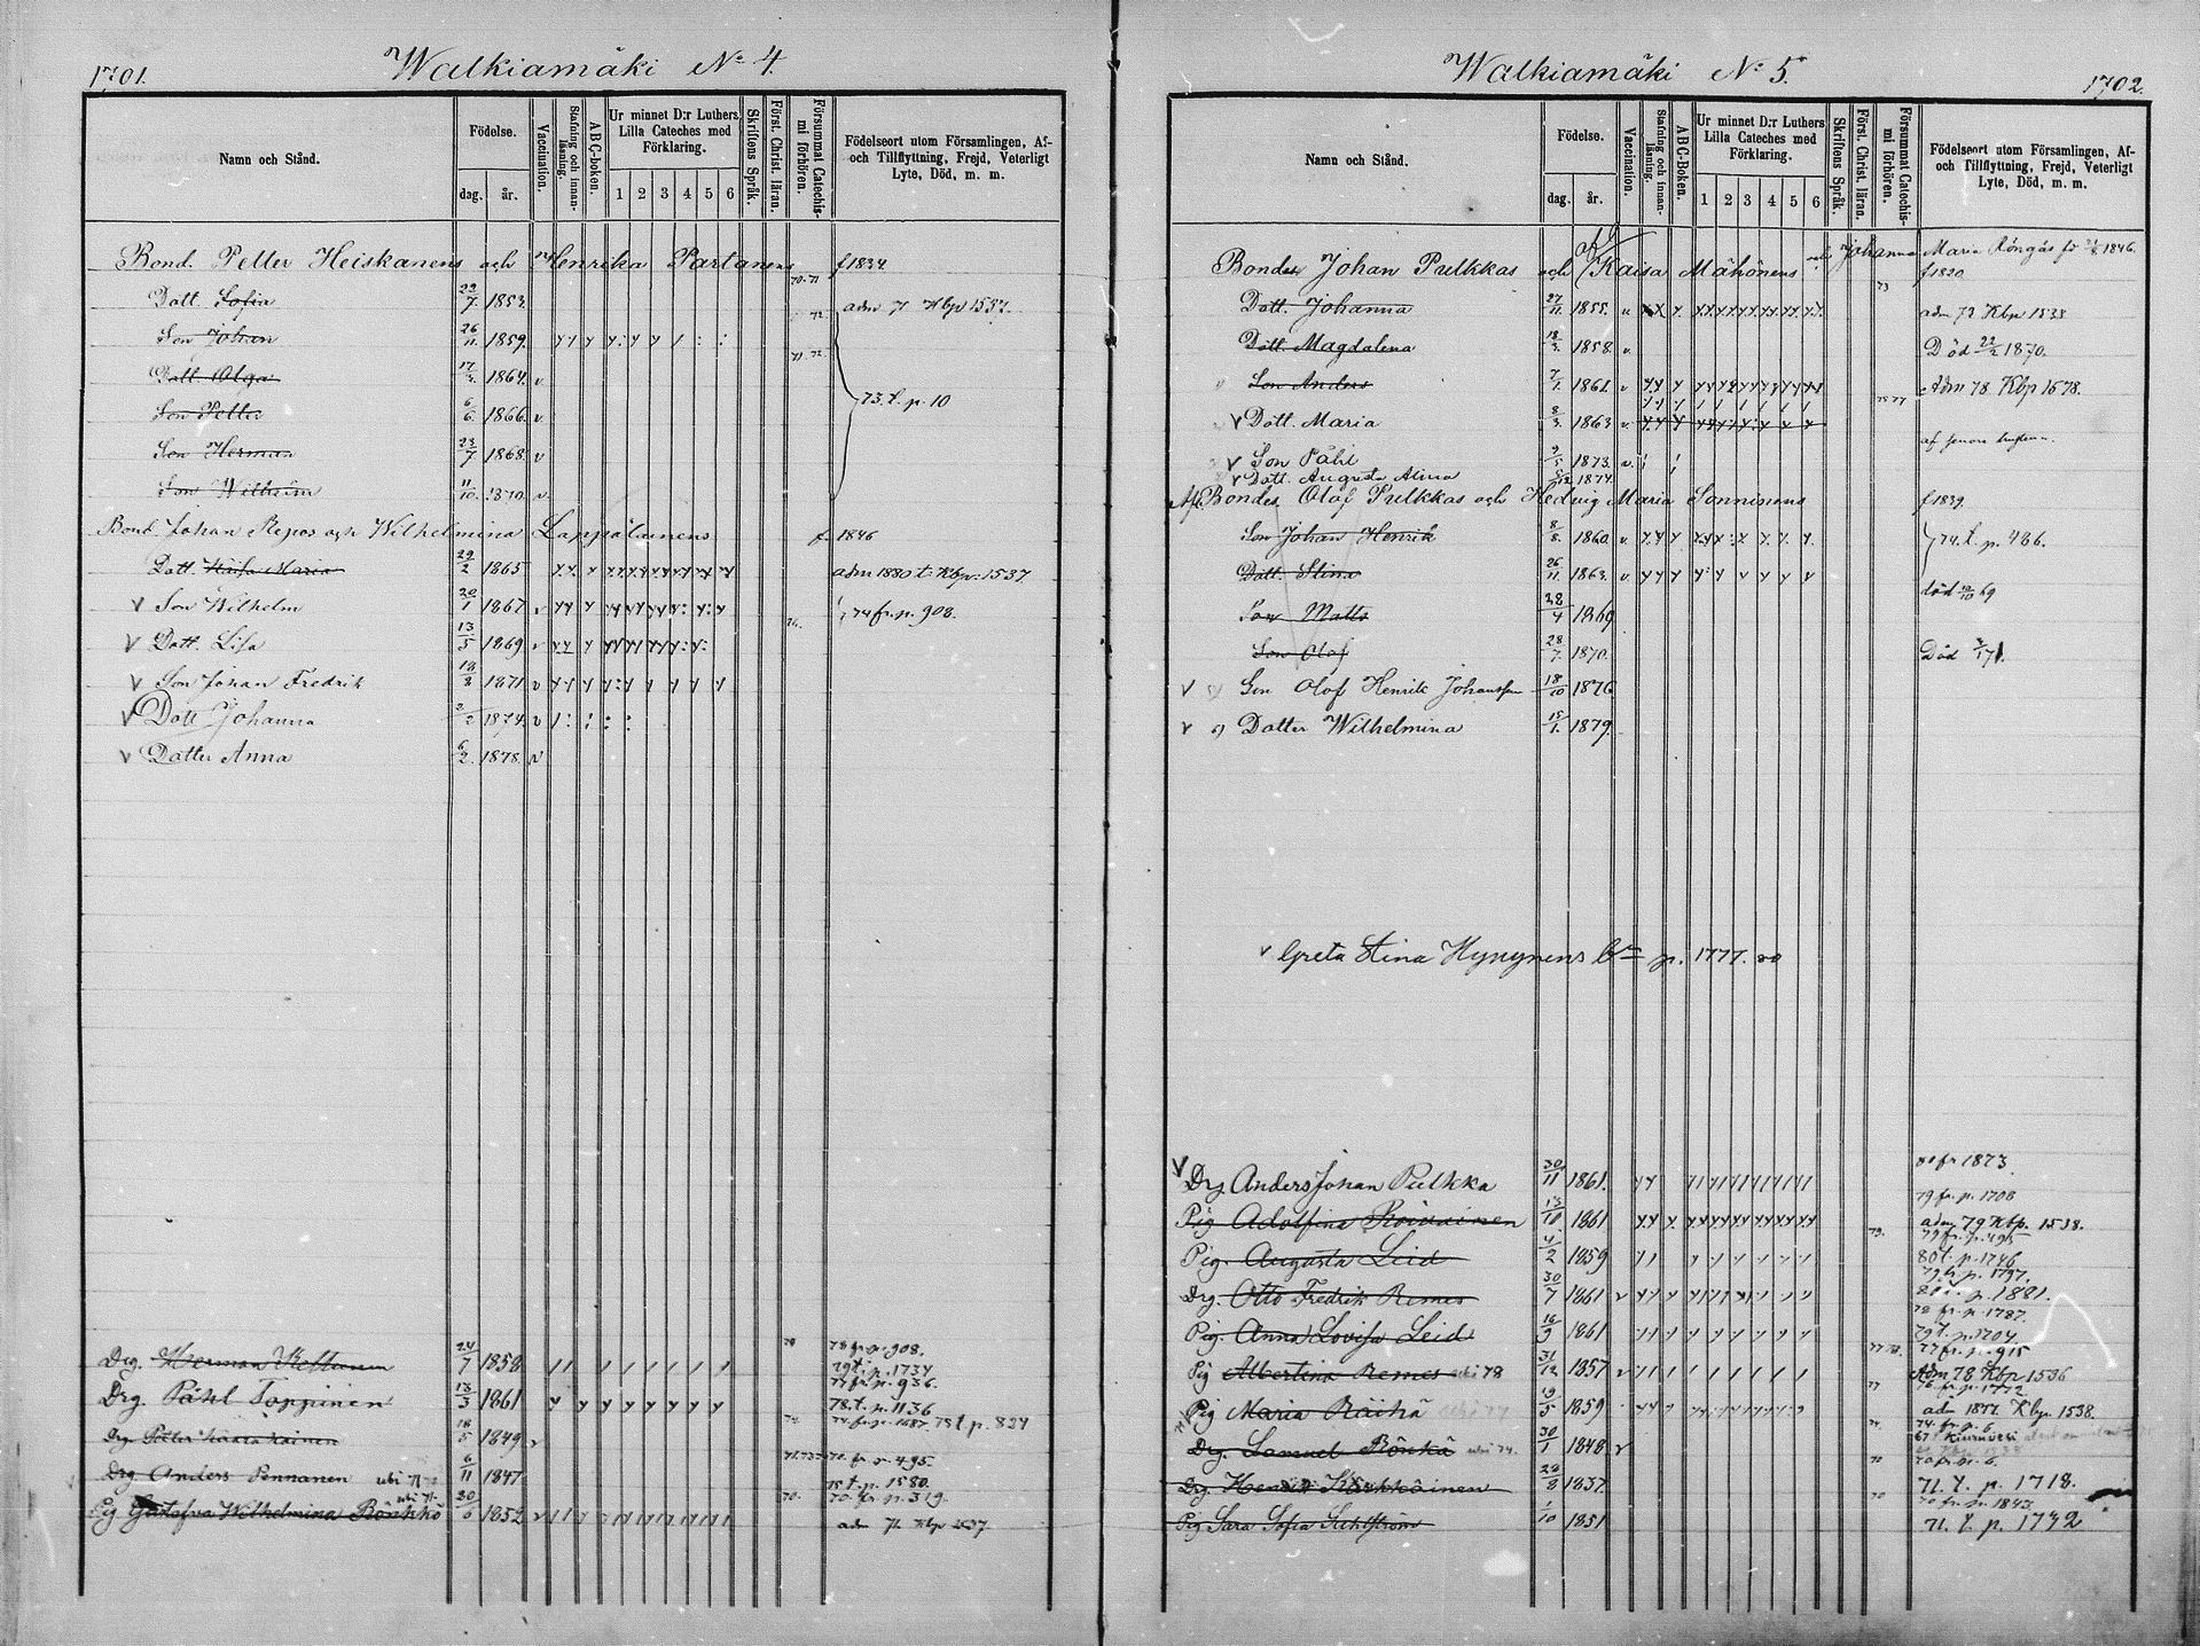 1701.
Walkiamäki No 4.
Namn och Stånd.
Födelse.
dag.
år.
Vaccination.
Stafning och innanläsning.
ABC-boken.
Ur minnet D:r Luthers Lilla Cateches med Förklaring.
1 2 3 4 5 6
Skriftens Språk.
Först. Christ. läran.
Försummat Catechismi förhören.
Födelseort utom Församlingen, Af- och Tillflyttning, Frejd, Veterligt Lyte, Död, m. m.
Bond. Petter Heiskanens och Henrika Partanens f 1834
Dott. Sofia 22/7 1853. 70.71 adm 71 Kbp 1537.
Son Johan 26/11 1859. 72.
Dott. Olga 17/3 1864. v 71 72.
Son Petter 6/6 1866. v 73. t. p. 10
Son Herman 23/7 1868. v
Son Wilhelm 11/10 1870. v
Bond. Johan Repos och Wilhelmina Lappalainens f 1846
Dott. Kaisa Maria 22/2 1865 adm 1880 t. Kbp. 1537
v Son Wilhelm 20/1 1867 74 fr. p. 908.
v Dott. Lisa 13/5 1869 76.
v Son Johan Fredrik 18/8 1871 v
v Dott Johanna 2/2 1874. v
v Dotter Anna 6/2 1878. v
Drg. Herman 24/7 1858 78 78 fr. p. 908.
79 t. p. 1734
Drg. Påhl Toppinen 13/3 1861 77 fr. p. 936.
78. t. p. 1136
Drg. Petter 18/5 1849 v 74. 74 fr. p. 1687. 75 t. p. 824
Drg Anders Pennanen 6/11 1847 70. fr. p. 495.
75 t. p. 1580.
Pig Gustafva Wilhelmina Rönkkö 20/6 1852 v 70. 70. fr. p. 319.
adm 71 Kbp 1537
Walkiamäki No 5.
1702.
Namn och Stånd.
Födelse.
dag.
år.
Vaccination.
Stafning och innanläsning.
ABC-boken.
Ur minnet D:r Luthers Lilla Cateches med Förklaring.
1 2 3 4 5 6
Skriftens Språk.
Först. Christ. läran.
Försummat Catechismi förhören.
Födelseort utom Församlingen, Af- och Tillflyttning, Frejd, Veterligt Lyte, Död, m. m.
Bondes Johan Pulkkas och Kaisa Mähönens och Johanna Maria Röngäs 1846.
f 1820
Dott. Johanna 27/11 1855. 73 adm 73 Kbp 1538
Dott. Magdalena 18/3 1858. v. Död 22/2 1870.
Son Anders 7/1 1861. v Adm 78. Kbp 1678.
v Dott. Maria 8/3 1863 v. 75 77
v Son Påhl 9/5 1873. v.
v Dott. Augusta Alina 1874.
Afl. Bondes Olof Pulkkas och Hedvig Maria Sonninens f 1839.
Son Johan Henrik 8/8 1860 v. 74. t. p. 486.
Dott. Stina 26/11 1863. v
Son Matts 28/4 1869 död 69
Son Olof 28/7 1870. Död 71.
v Son Olof Henrik Johansson 18/10 1876
v Dotter Wilhelmina 15/1 1879.
v Greta Stina Hynynens p. 1777.
v Drg Anders Johan Pulkka 30/11 1861. 80 fr 1873
Pig Adolfina Koivainen 13/10 1861 79 fr. p. 1708
adm 79 Kbp. 1538.
Pig. Augusta Leid 4/2 1859 79. 79 fr. p. 495
80 t. p. 1746
Drg. Otto Fredrik Remes 30/7 1861 v 79 fr. p. 1797.
p. 1881.
Pig. Anna Lovisa Leid 16/9 1861 78 fr. p. 1787.
79 t. p. 1704.
Pig Albertina Remes ubi 78 31/12 1857 v 77 fr. p. 915
Adm 78 Kbp 1536
Pig Maria Räihä ubi 77 19/5 1859 77 76 fr. p. 1772
adm 1877 Kbp. 1538.
Drg. Samuel Rönkä ubi 74. 30/1 1848 v 74. 74. fr. p. 6
67 t Kiuruvesi
Drg. Henrik Kärkkäinen 28/8 1837. 70 70 fr. p. 6.
71. t. p. 1718.
Pig Sara Sofia Sahlström 1/10 1851 70 70 fr. p. 1843
71. t. p. 1742